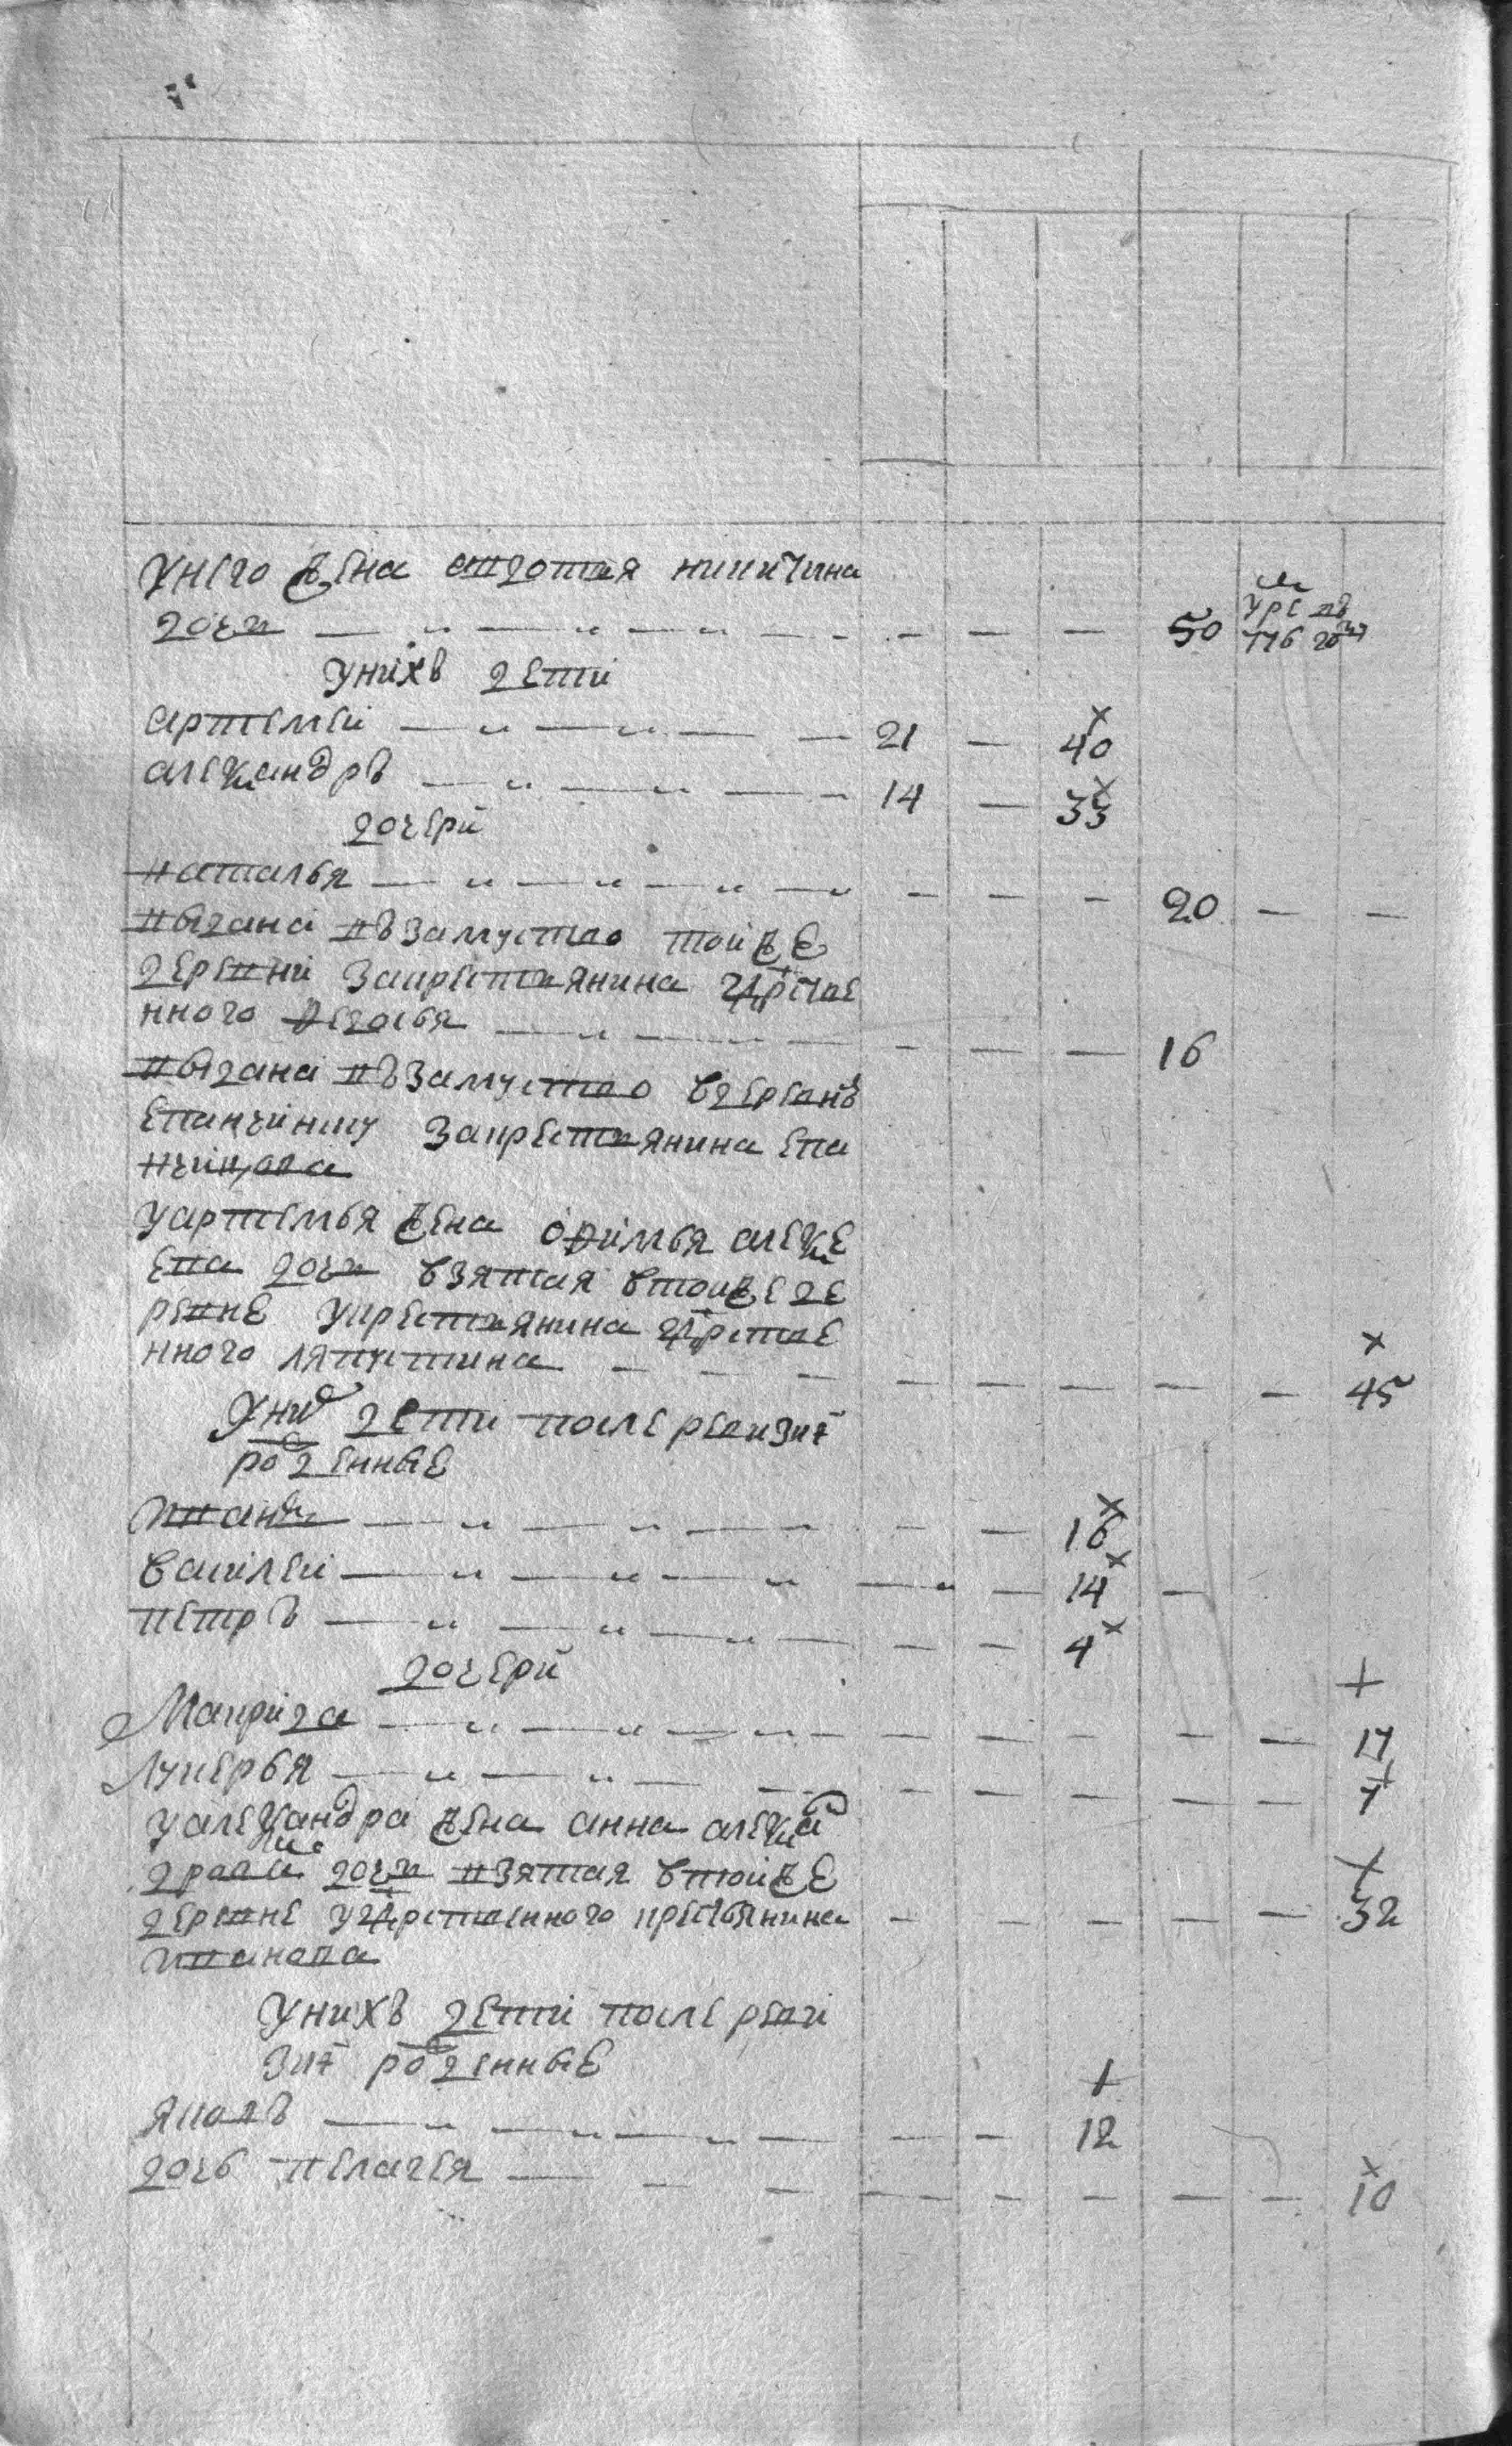 Унего жена авдотья никитина
дочь — — — — — — — — — 50 умре въ 776 году
унихъ дети
артемей — — — — 21 — 40
александръ — — — — 14 — 33
дочери
наталья — — — — — — — 20 — —
выдана въ замуство тойже
деревни за крестьянина Ядрстве
нного федосья — — — — — — 16
выдана въ замуство вдеревнъ
епанчину за крестьянина епа
нчинцова
уартемья жена офимья алексе
ева дочь взятая втойже де
ревне укрестьянина
нного ляпустина — — — — — — — — 45
Уних дети после ревизиї
рожденные
иванъ — — — — — — 16
василей — — — — — — 14 —
петръ — — — — — — 4
дочери
Маврида — — — — — — — — 17
Лукерья — — — — — — — — 7
уалександра жена анна алексан
дрова дочь взятая втойже
деревне крестьянина — — — — — 32
иванова
унихъ дети после реви
зиї рожденные
яковъ — — — — — — 12
дочь пелагея — — — — — — — — 10